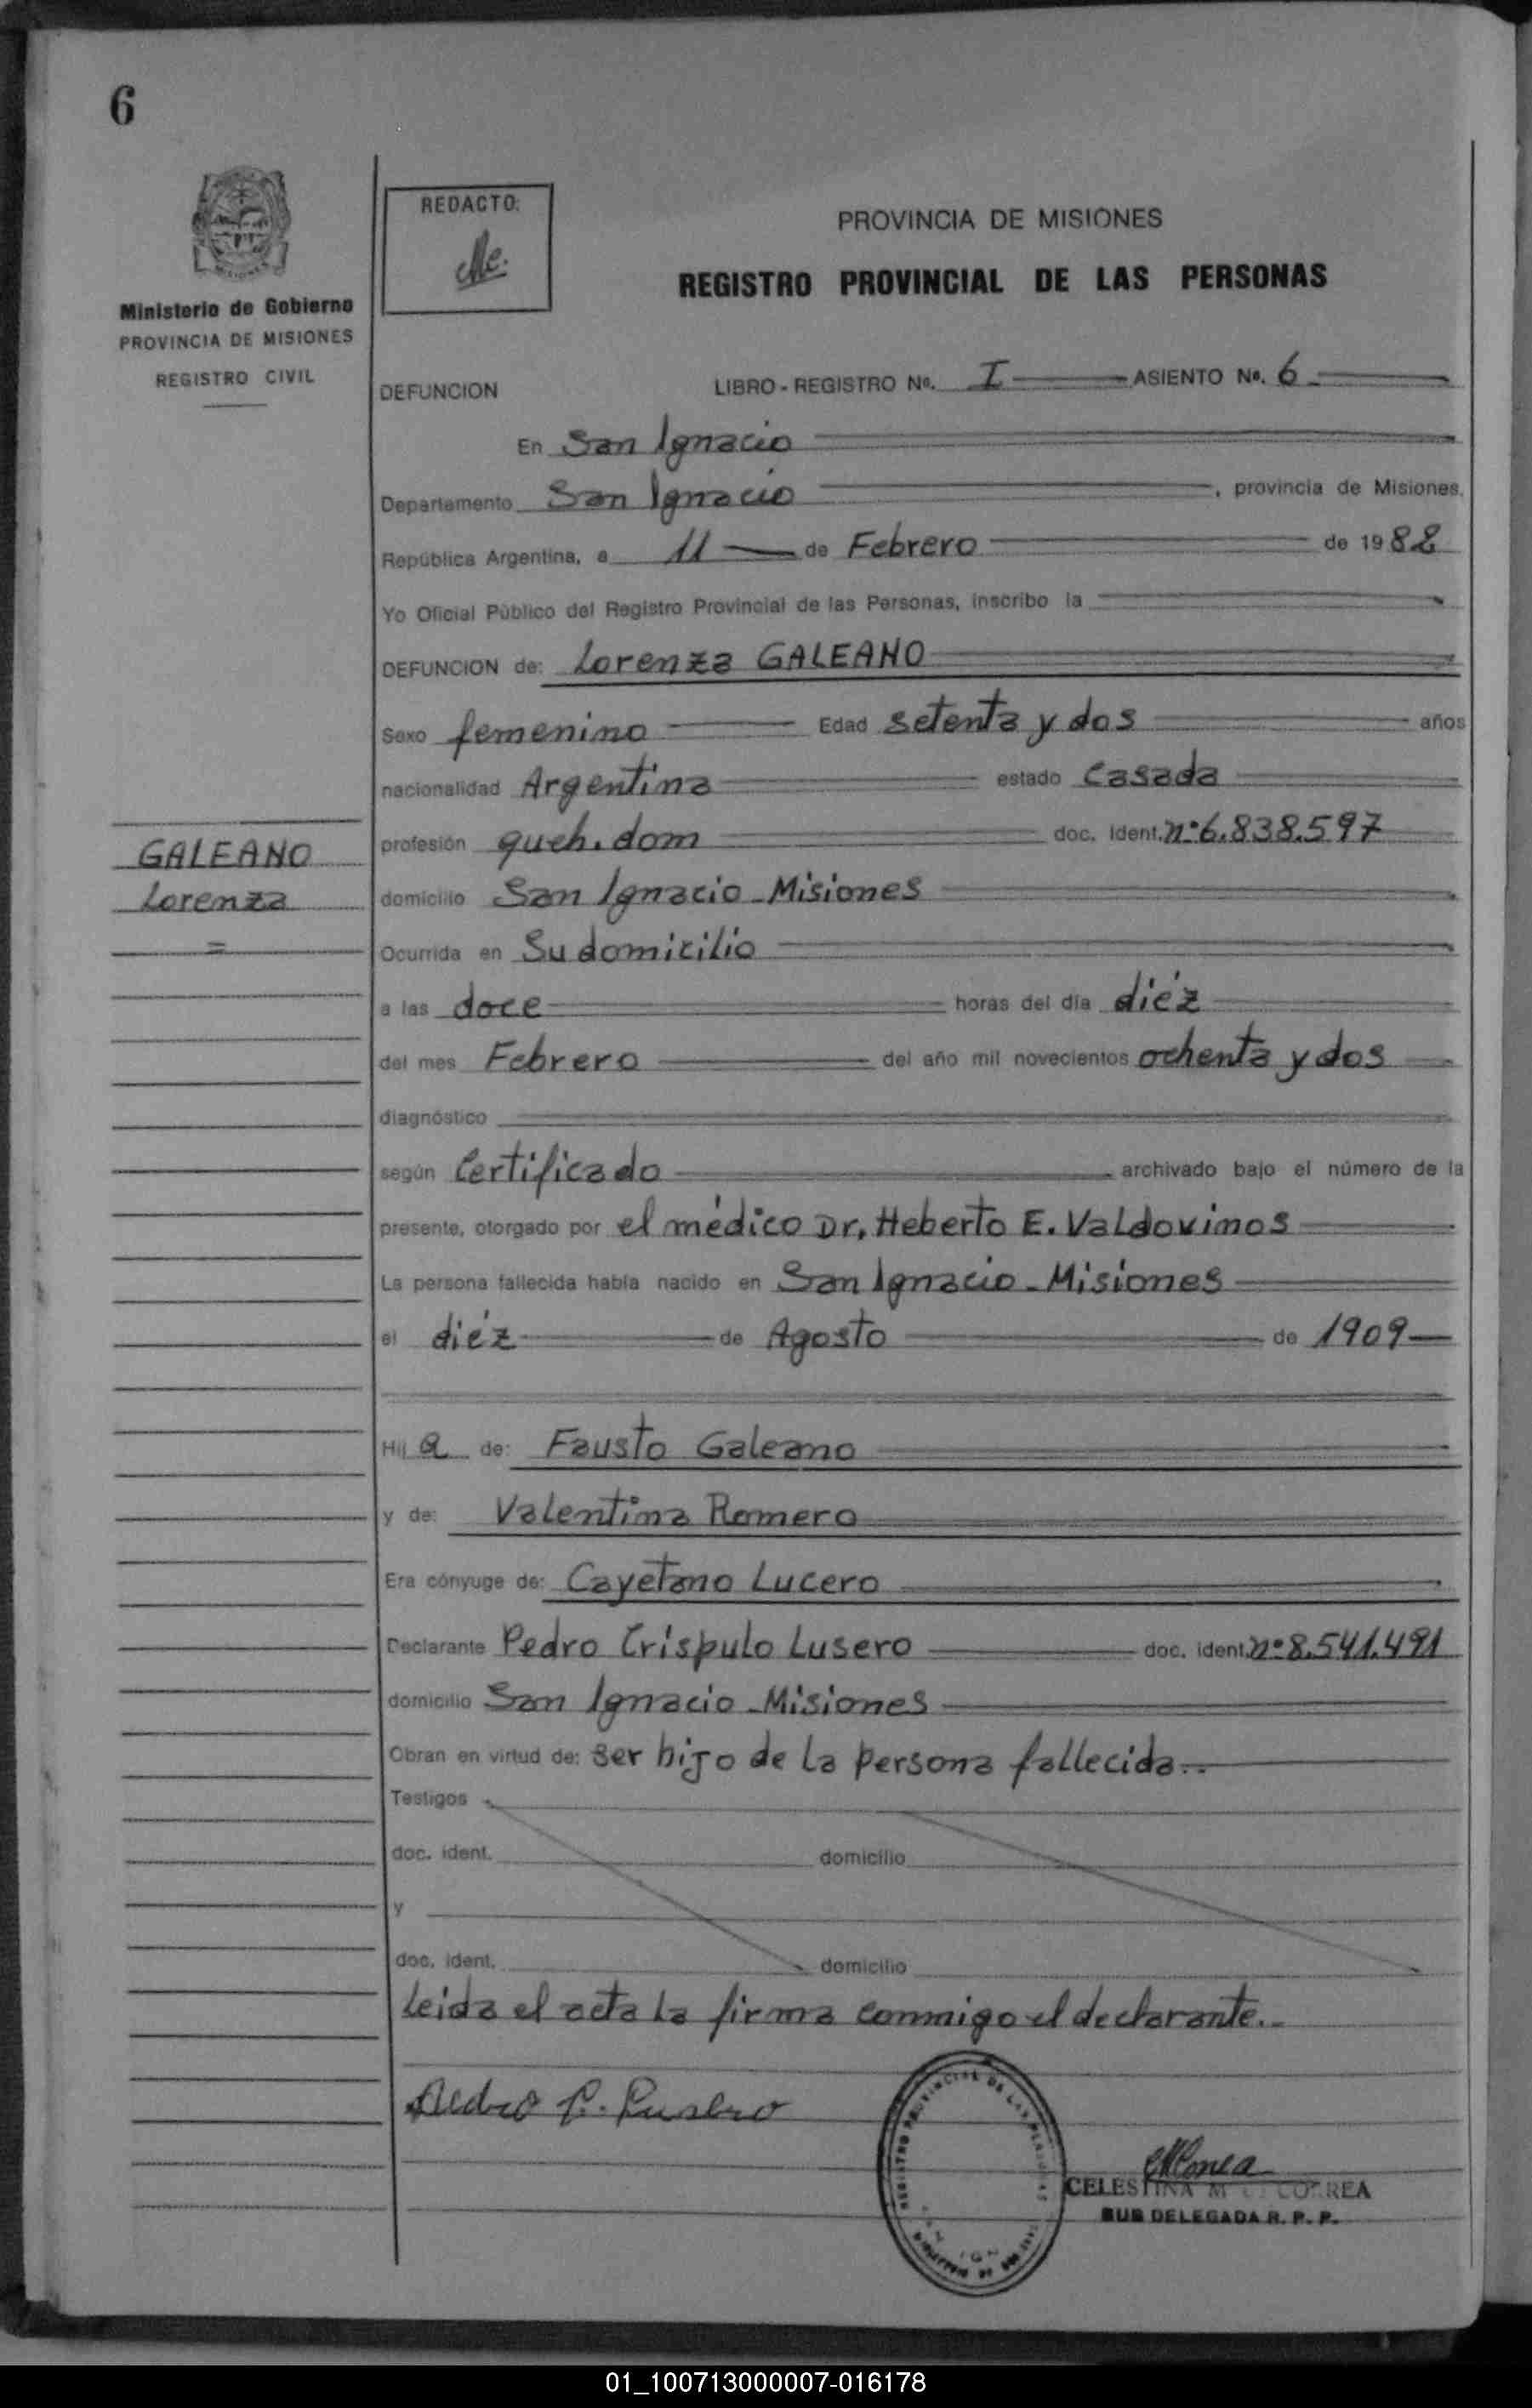 6
REDACTO:
Me.
PROVINCIA DE MISIONES
REGISTRO PROVINCIAL DE LAS PERSONAS
MISIONES
Ministerio de Gobierno
PROVINCIA DE MISIONES
REGISTRO CIVIL
DEFUNCION LIBRO - REGISTRO Nº. I ASIENTO Nº. 6
En San Ignacio
Departamento San Ignacio, provincia de Misiones,
República Argentina, a 11 de Febrero de 1982
Yo Oficial Público del Registro Provincial de las Personas, inscribo la
DEFUNCION de: Lorenza GALEANO
Sexo femenino Edad setenta y dos años
nacionalidad Argentina estado Casada
profesión queh. dom doc. ident. nº 6.838.597
GALEANO
Lorenza
=
domicilio San Ignacio - Misiones
Ocurrida en Su domicilio
a las doce horas del día diéz
del mes Febrero del año mil novecientos ochenta y dos
diagnóstico
según Certificado archivado bajo el número de la
presente, otorgado por el médico Dr. Heberto E. Valdovinos
La persona fallecida había nacido en San Ignacio - Misiones
el diéz de Agosto de 1909
Hij a de: Fausto Galeano
y de: Valentina Romero
Era cónyuge de: Cayetano Lucero
Declarante Pedro Críspulo Lusero doc. ident. nº 8.541.491
domicilio San Ignacio - Misiones
Obran en virtud de: ser hijo de la persona fallecida..
Testigos
doc. ident. domicilio
y
doc. ident. domicilio
Leida el acta la firma conmigo el declarante..
Pedro C. Lusero
REGISTRO PROVINCIAL DE LAS PERSONAS
CELESTINA M CORREA
SUB DELEGADA R. P. P.
01_100713000007-016178